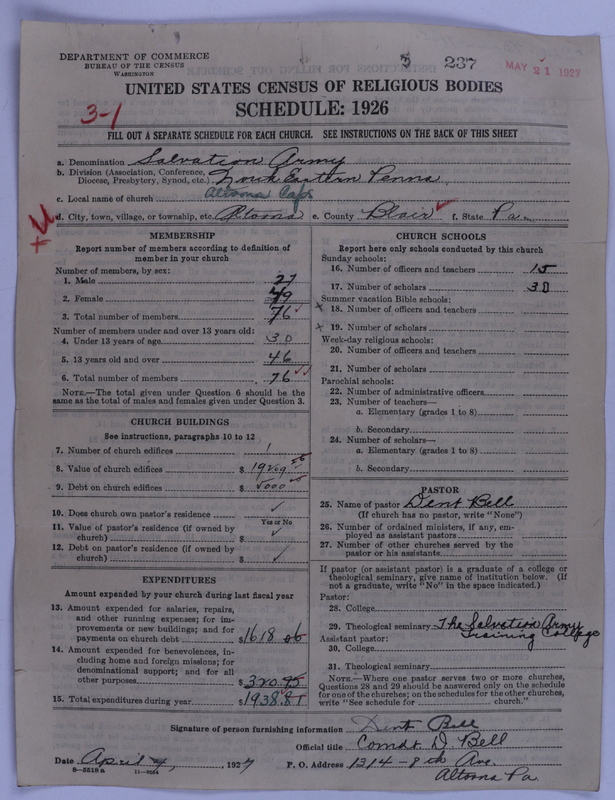 DEPARTMENT OF COMMERCE
BUREAU OF THE CENSUS
WASHINGTON
3 237
MAY 21 1927
UNITED STATES CENSUS OF RELIGIOUS BODIES
SCHEDULE: 1926
3-1
FILL OUT A SEPARATE SCHEDULE FOR EACH CHURCH. SEE INSTRUCTIONS ON THE BACK OF THIS SHEET
a. Denomination Salvation Army
b. Division (Association, Conference, Diocese, Presbytery, Synod, etc.) South Eastern Penna
c. Local name of church Altoona Corps
d. City, town, village, or township, etc. Altoona e. County Blair f. State Pa.
MEMBERSHIP
Report number of members according to definition of
member in your church
Number of members, by sex:
1. Male 27
2. Female 49
3. Total number of members 76
Number of members under and over 13 years old:
4. Under 13 years of age 30
5. 13 years old and over 46
6. Total number of members 76
NOTE.—The total given under Question 6 should be
same as the total of males and females given under Question 3.
CHURCH BUILDINGS
See instructions, paragraphs 10 to 12
7. Number of church edifices 1
8. Value of church edifices $
9. Debt on church edifices $ 5000
10. Does church own pastor's residence
Yes or No
11. Value of pastor's residence (if owned by
church) $
12. Debt on pastor's residence (if owned by
church) $
EXPENDITURES
Amount expended by your church during last fiscal year
13. Amount expended for salaries, repairs,
and other running expenses; for im-
provements or new buildings; and for
payments on church debt $ 1618.06
14. Amount expended for benevolences, in-
cluding home and foreign missions; for
denominational support; and for all
other purposes $ 320.95
15. Total expenditures during year $
CHURCH SCHOOLS
Report here only schools conducted by this church
Sunday schools:
16. Number of officers and teachers 15
17. Number of scholars 30
Summer vacation Bible schools:
x 18. Number of officers and teachers
x 19. Number of scholars
Week-day religious schools:
20. Number of officers and teachers
21. Number of scholars
Parochial schools:
22. Number of administrative officers
23. Number of teachers—
a. Elementary (grades 1 to 8)
b. Secondary
24. Number of scholars—
a. Elementary (grades 1 to 8)
b. Secondary
PASTOR
25. Name of pastor Dent Bell
(If church has no pastor, write "None")
26. Number of ordained ministers, if any, em-
ployed as assistant pastors
27. Number of other churches served by the
pastor or his assistants
If pastor (or assistant pastor) is a graduate of a college or
theological seminary, give name of institution below. (If
not a graduate, write "No" in the space indicated.)
Pastor:
28. College
29. Theological seminary The Salvation Army
Training College
Assistant pastor:
30. College
31. Theological seminary
NOTE.—Where one pastor serves two or more churches,
Questions 28 and 29 should be answered only on the schedule
for one of the churches; on the schedules for the other churches,
write "See schedule for church."
Signature of person furnishing information Dent Bell
Official title Comdt. D. Bell
Date April 4, 1927 P. O. Address 1314-8th Ave.
8-5518 a 11-9054 Altoona Pa.